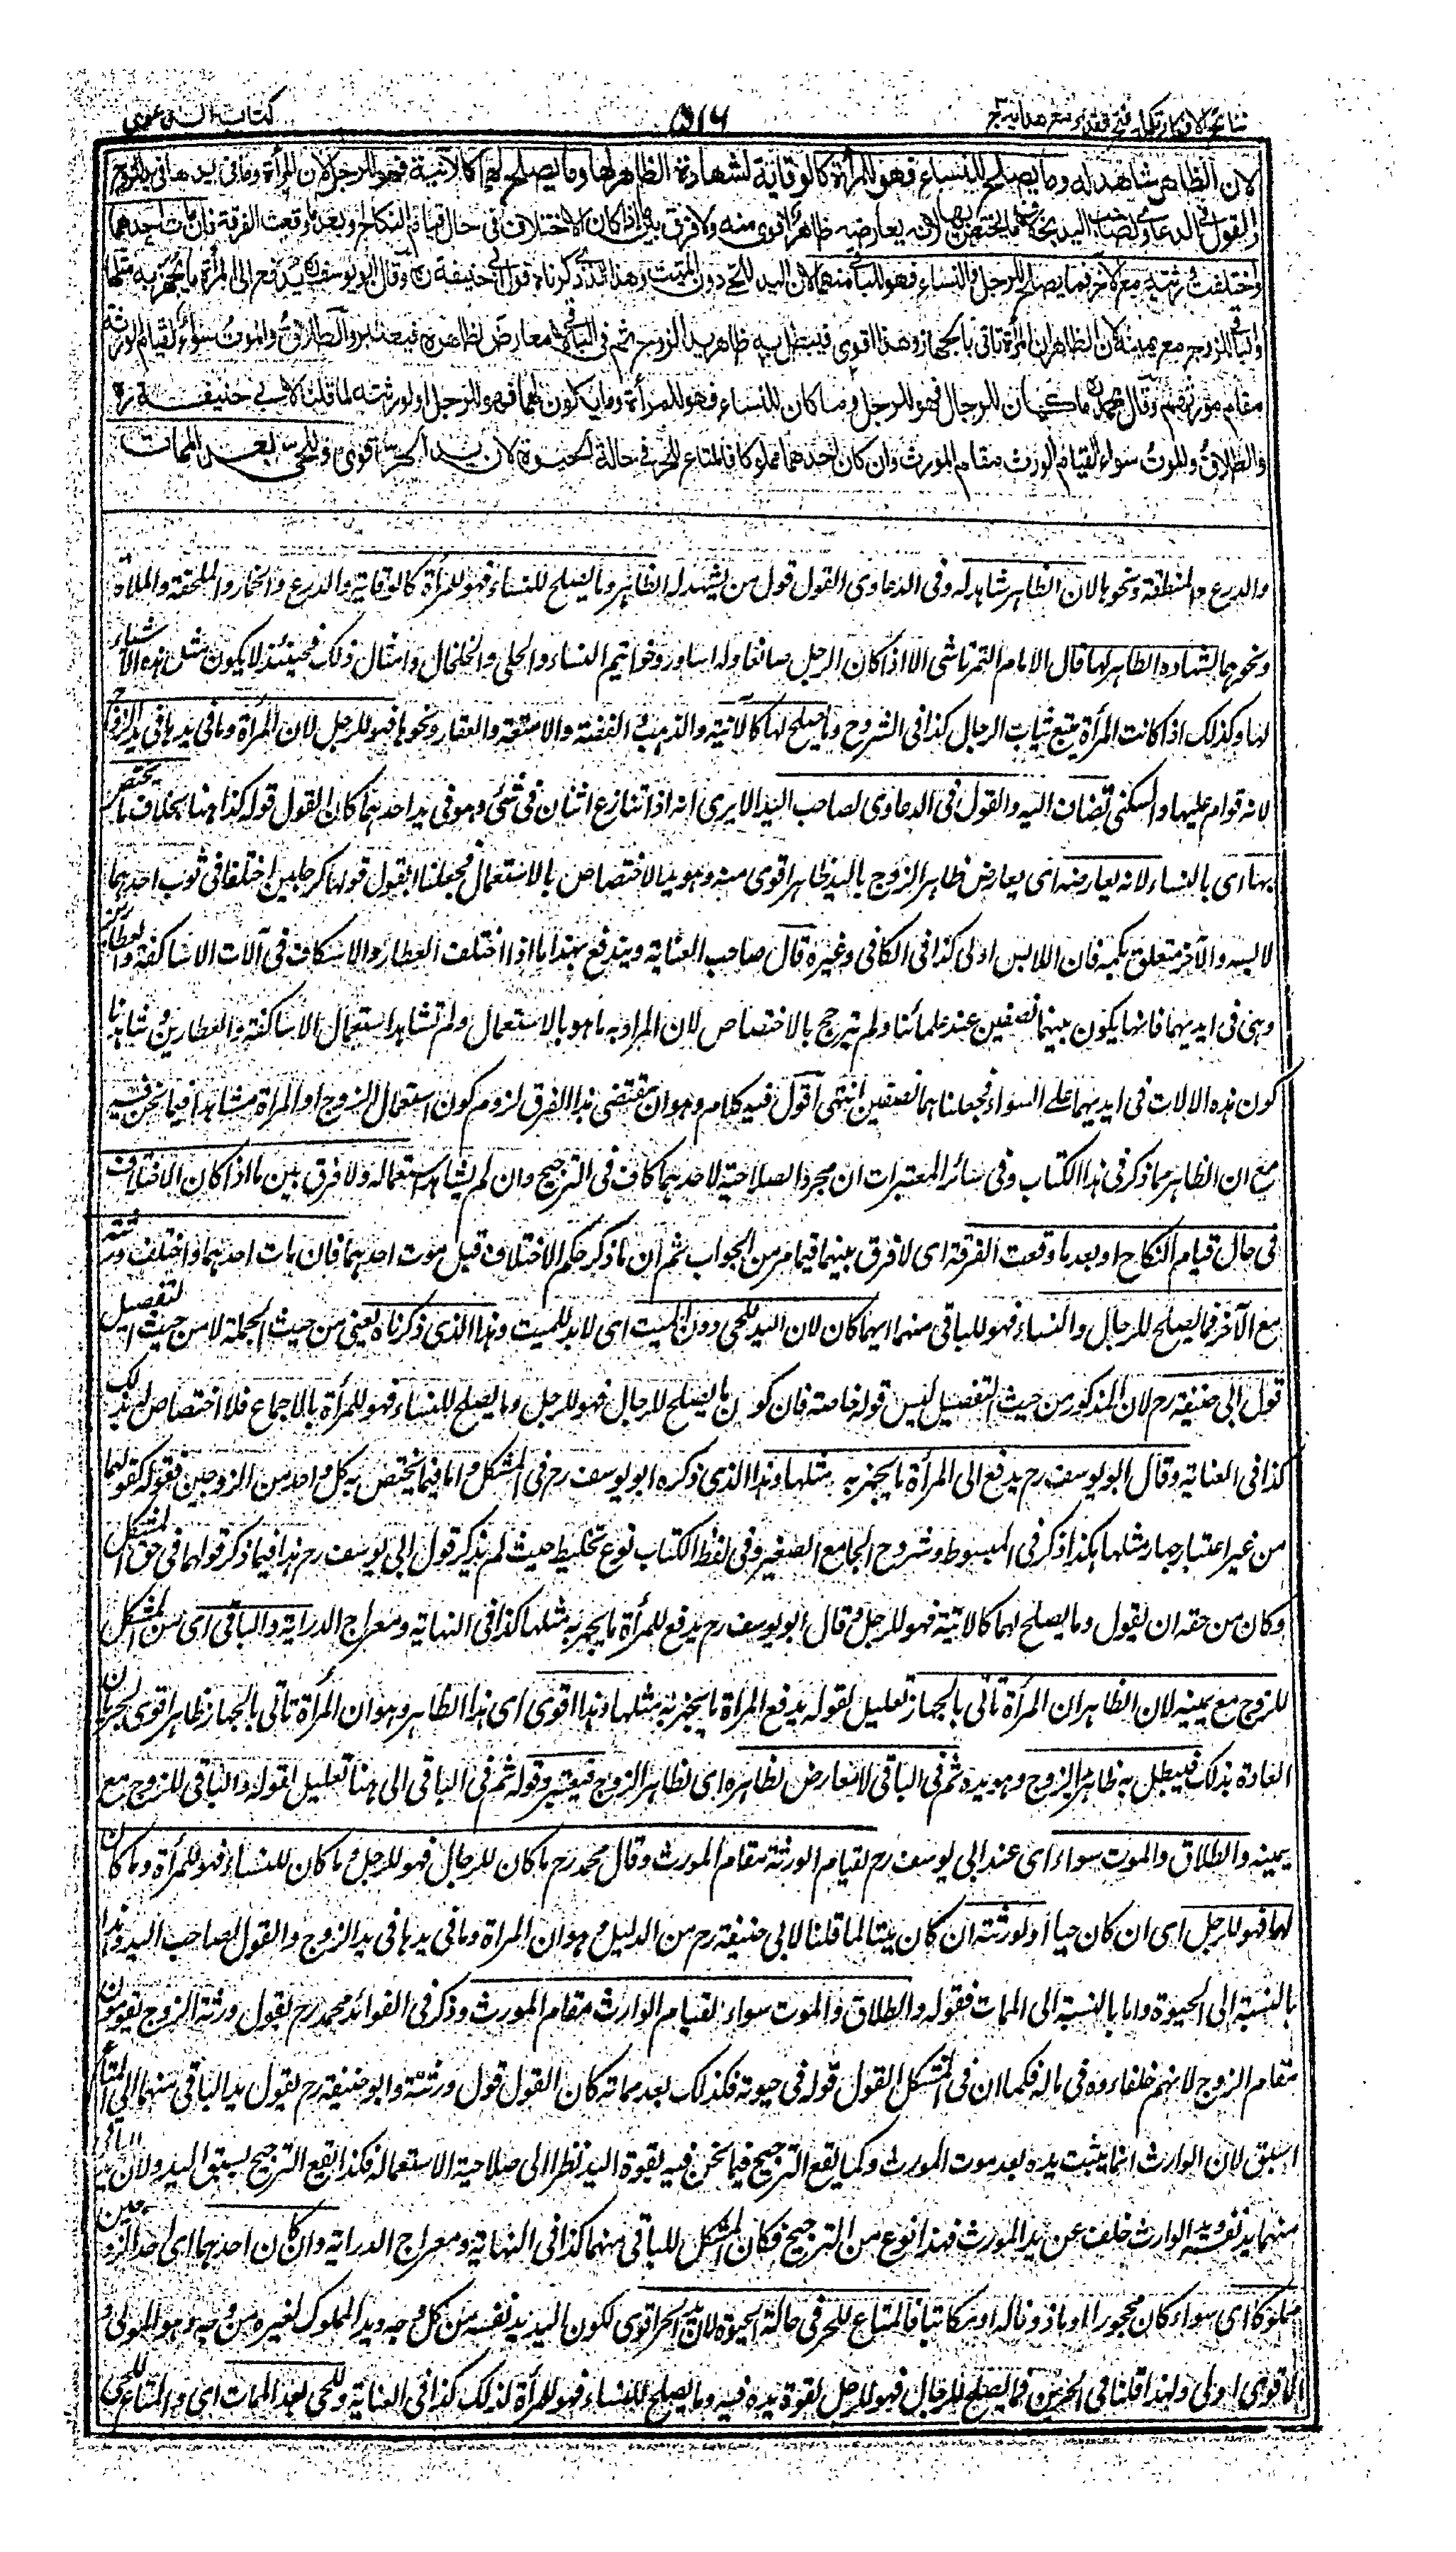 نتائج الافكار تكملة فتح القدير مع هدايه ج ٣
٥١٦
كتاب الدعوى
لان الظاهر شاهد له وما يصلح للنساء فهو للمرأة كالوقاية لشهادة الظاهر لها وما يصلح لهما كالآنية فهو للرجل لان المرأة وما فى يدها فى يد الزوج
والقول فى الدعاوى لصاحب اليد بخلاف ما يختص بها لانه يعارضه ظاهر اقوى منه ولا فرق بين ما اذا كان الاختلاف فى حال قيام النكاح او بعد ما وقعت الفرقة فان مات احدهما
واختلفت ورثته مع الآخر فما يصلح للرجال والنساء فهو للباقى منهما لان اليد للحى دون الميت وهذا الذى ذكرناه قول ابى حنيفة رح وقال ابو يوسف رح يدفع الى المرأة ما يجهز به مثلها
والباقى للزوج مع يمينه لان الظاهر ان المرأة تاتى بالجهاز وهذا اقوى فيبطل به ظاهر يد الزوج ثم فى الباقى لا معارض لظاهره فيعتبر والطلاق والموت سواء لقيام الورثة
مقام مورثهم وقال محمد رح ما كان للرجال فهو للرجل وما كان للنساء فهو للمرأة وما يكون لهما فهو للرجل او لورثته لما قلنا لابى حنيفة رح
والطلاق والموت سواء لقيام الوارث مقام المورث وان كان احدهما مملوكا فالمتاع للحر فى حالة الحيوة لان يد الحر اقوى وللحى بعد الممات
والدرع والمنطقة ونحوها لان الظاهر شاهد له وفى الدعاوى القول قول من يشهد له الظاهر وما يصلح للنساء فهو للمرأة كالوقاية والدرع والخمار والملحفة والملاءة
ونحوها لشهادة الظاهر لها قال الامام التمرتاشى الا اذا كان الرجل صائغا وله اساور وخواتيم النساء والحلى والخلخال وامثال ذلك فحينئذ لا يكون مثل هذه الاشياء
لها وكذلك اذا كانت المرأة تبيع ثياب الرجال كذا فى الشروح وما يصلح لهما كالآنية والذهب والفضة والامتعة والعقار ونحوها فهو للرجل لان المرأة وما فى يدها فى يد الزوج
لانه قوام عليها والسكنى تضاف اليه والقول فى الدعاوى لصاحب اليد الا يرى انه اذا تنازع اثنان فى شئ وهو فى يد احدهما كان القول قوله كذا هنا بخلاف ما يختص
بها اى بالنساء لانه يعارضه اى يعارض ظاهر الزوج باليد ظاهر اقوى منه وهو يد الاختصاص بالاستعمال فجعلنا القول قولها كرجلين اختلفا فى ثوب احدهما
لابسه والآخر متعلق بكمه فان اللابس اولى كذا فى الكافى وغيره قال صاحب العناية ويندفع بهذا ما اذا اختلف العطار والاسكاف فى آلات الاساكفة والعطارين
وهى فى ايديهما فانها يكون بينهما نصفين عند علمائنا ولم ترجح بالاختصاص لان المراد به ما هو بالاستعمال ولم نشاهد استعمال الاساكفة والعطارين وشاهدنا
كون هذه الالات فى ايديهما على السواء فجعلناها نصفين انتهى اقول فيه كلام وهو ان مقتضى هذا الفرق لزوم كون استعمال الزوج او المرأة مشاهدا فيما نحن فيه
مع ان الظاهر مما ذكر فى هذا الكتاب وفى سائر المعتبرات ان مجرد الصلاحية لاحدهما كاف فى الترجيح وان لم يشاهد استعماله ولا فرق بين ما اذا كان الاختلاف
فى حال قيام النكاح او بعد ما وقعت الفرقة اى لا فرق بينهما فيما مر من الجواب ثم ان ما ذكر حكم الاختلاف قبل موت احدهما فان مات احدهما واختلف ورثته
مع الآخر فما يصلح للرجال والنساء فهو للباقى منهما ايهما كان لان اليد للحى دون الميت اى لا يد للميت وهذا الذى ذكرناه يعنى من حيث الجملة لا من حيث التفصيل
قول ابى حنيفة رح لان المذكور من حيث التفصيل ليس قوله خاصة فان كون ما يصلح للرجال فهو للرجل وما يصلح للنساء فهو للمرأة بالاجماع فلا اختصاص له بذلك
كذا فى العناية وقال ابو يوسف رح يدفع الى المرأة ما يجهز به مثلها وهذا الذى ذكره ابو يوسف رح فى المشكل واما فيما يختص به كل واحد من الزوجين فقوله كقولهما
من غير اعتبار جهاز مثلها هكذا ذكر فى المبسوط وشروح الجامع الصغير وفى لفظ الكتاب نوع تخليط حيث لم يذكر قول ابى يوسف رح هذا فيما ذكر قولهما فى حق المشكل
وكان من حقه ان يقول وما يصلح لهما كالآنية فهو للرجل وقال ابو يوسف رح يدفع للمرأة ما يجهز به مثلها كذا فى النهاية ومعراج الدراية والباقى اى من المشكل
للزوج مع يمينه لان الظاهر ان المرأة تاتى بالجهاز تعليل لقوله يدفع المرأة ما يجهز به مثلها وهذا اقوى اى هذا الظاهر وهو ان المرأة تاتى بالجهاز ظاهر اقوى لجريان
العادة بذلك فيبطل به ظاهر الزوج وهو يده ثم فى الباقى لا معارض لظاهره اى لظاهر الزوج فيعتبر وقوله ثم فى الباقى الى هنا تعليل لقوله والباقى للزوج مع
يمينه والطلاق والموت سواء اى عند ابى يوسف رح لقيام الورثة مقام المورث وقال محمد رح ما كان للرجال فهو للرجل وما كان للنساء فهو للمرأة وما كان
لهما فهو للرجل اى ان كان حيا او لورثته ان كان ميتا لما قلنا لابى حنيفة رح من الدليل وهو ان المرأة وما فى يدها فى يد الزوج والقول لصاحب اليد وهذا
بالنسبة الى الحيوة واما بالنسبة الى الممات فقوله والطلاق والموت سواء لقيام الوارث مقام المورث وذكر فى الفوائد محمد رح يقول ورثة الزوج يقومون
مقام الزوج لانهم خلفاؤه فى ماله فكما ان فى المشكل القول قوله فى حيوته فكذلك بعد مماته كان القول قول ورثته وابو حنيفة رح يقول يد الباقى منهما الى المتاع
اسبق لان الوارث انما يثبت يده بعد موت المورث وكما يقع الترجيح فيما نحن فيه بقوة اليد نظرا الى صلاحية الاستعمال فكذا يقع الترجيح بسبق اليد ولان يد الباقى
منهما يد نفسه ويد الوارث خلف عن يد المورث فهذا نوع من الترجيح فكان المشكل للباقى منهما كذا فى النهاية ومعراج الدراية وان كان احدهما اى احد الزوجين
مملوكا اى سواء كان محجورا او ماذونا له او مكاتبا فالمتاع للحر فى حالة الحيوة لان يد الحر اقوى لكون اليد يد نفسه من كل وجه ويد المملوك لغيره من وجه وهو المولى و
الاقوى اولى ولهذا قلنا فى الحرين فما يصلح للرجال فهو للرجل لقوة يده فيه وما يصلح للنساء فهو للمرأة لذلك كذا فى العناية وللحى بعد الممات اى والمتاع للحى